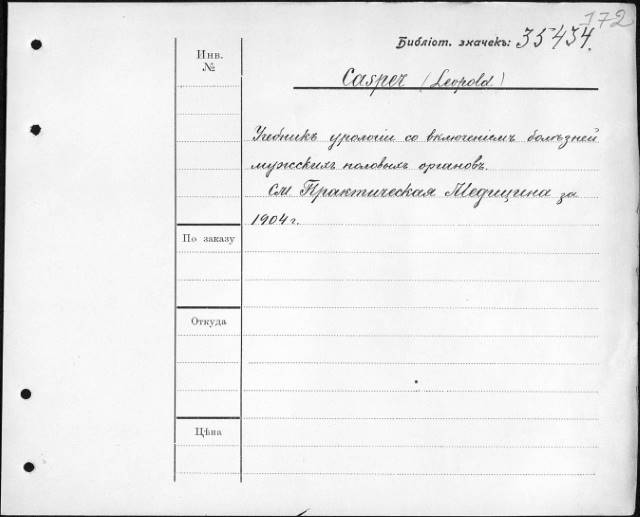 172
Библіот. значекъ: 35434.
Инв.
№
Casper (Leopold.)
Учебникъ урологіи со включеніемъ болѣзней
мужскихъ половыхъ органовъ.
См Практическая Медицина за
1904 г.
По заказу
Откуда
Цѣна